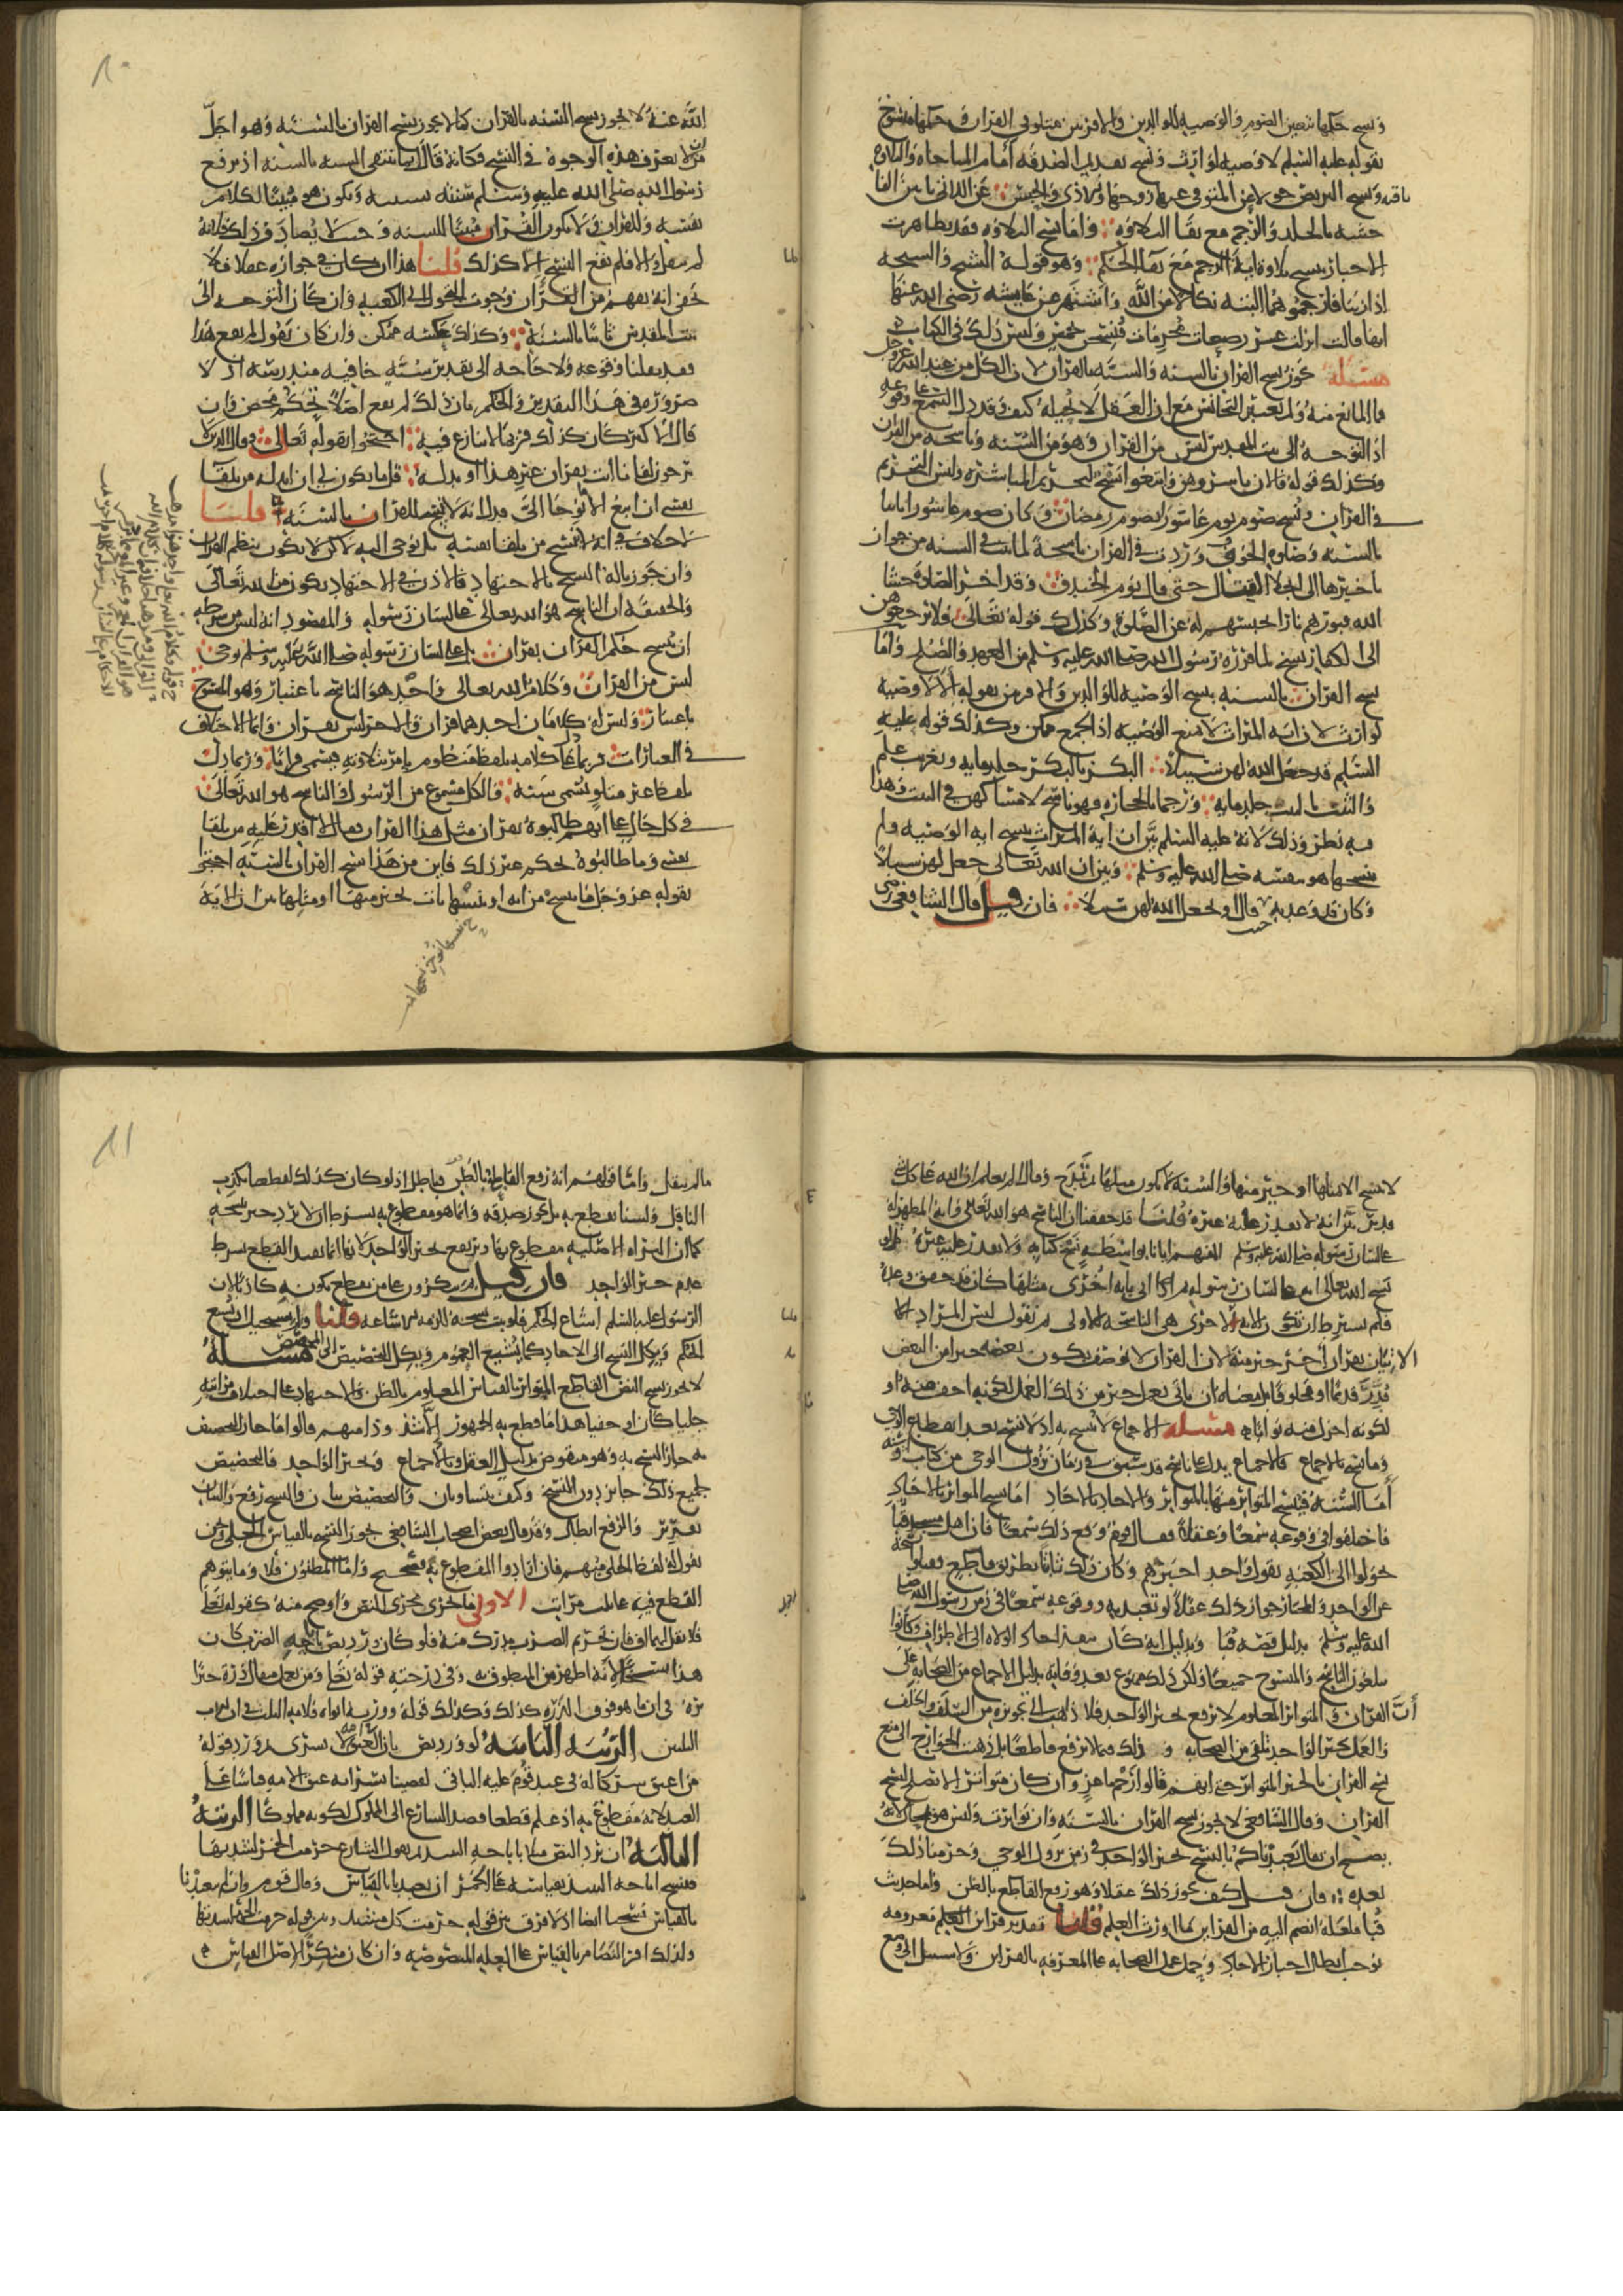 ونسخ حكمها تعيين الصوم والوصية للوالدين والاقربين متلو في القران وحكمها منسوخ
بقوله عليه السلم لا وصية لوارث ونسخ تقديم الصدقة أمام المناجاه والتلاوة
باقيه ونسخ التربص حولا عن المتوفى عنها زوجها والاذى والحبس عن اللاتي ياتين الفا
حشه بالجلد والرجم مع بقا التلاوه واما نسخ التلاوه فقد تظاهرت
الاخبار بنسخ تلاوة اية الرجم مع بقا الحكم وهو قوله الشيخ والشيخه
اذا زنيا فارجموهما البته نكالا من الله واشتهر عن عايشه رضي الله عنها
انها قالت انزلت عشر رضعات محرمات فنسخن بخمس وليس ذلك في الكتاب
مسئلة يجوز نسخ القران بالسنه والسنه بالقران لان الكل من عند الله عز وجل
فما المانع منه ولم يعتبر التجانس مع ان العقل لا يحيله كيف وقد دل السمع على وقوعه
اذ التوجه الى بيت المقدس ليس من القران وهو من السنه وناسخه من القران
وكذلك قوله فالان باشروهن وابتغوا نسخ لتحريم المباشره وليس التحريم
في القران ونسخ صوم يوم عاشورا بصوم رمضان وكان صوم عاشورا ثابتا
بالسنه وصلوه الخوف وردت في القران ناسخة لما ثبت في السنه من جواز
تاخيرها الى انجلا القتال حتى قال يوم الخندق وقد اخر الصلوة حشا
الله قبورهم نارا لحبسهم له عن الصلوة وكذلك قوله تعالى فلا ترجعوهن
الى الكفار نسخ لما قرره رسول الله صلى الله عليه وسلم من العهد والصلح واما
نسخ القران بالسنه بنسخ الوصيه للوالدين والاقربين بقوله ألا لا وصيه
لوارث لان اية الميراث لا تمنع الوصيه اذ الجمع ممكن وكذلك قوله عليه
السلم قد جعل الله لهن سبيلا البكر بالبكر جلد مايه وتغريب عام
والثيب بالثيب جلد مايه ورجما بالحجاره فهو ناسخ لامساكهن في البيت وهذا
فيه نظر وذلك لانه عليه السلم بين ان اية الميراث نسخ اية الوصيه ولم
ينسخها هو بنفسه صلى الله عليه وسلم وبين ان الله تعالى جعل لهن سبيلا
وكان قد وعد به حيث قال او يجعل الله لهن سبيلا فان قيل قال الشافعي رضي
١٠
الله عنه لا يجوز نسخ السنه بالقران كما لا يجوز نسخ القران بالسنه وهو اجل
من ان لا يعرف هذه الوجوه في النسخ فكانه قال انما تنتفى السنه بالسنه اذ يرفع
رسول الله صلى الله عليه وسلم سنته بسنته ويكون هو مبينا لكلام
نفسه وللقران ولا يكون القران مبينا للسنه وحيث لا يصادف ذلك فلانه
لم ينقل والا فلم يقع النسخ الا كذلك قلنا هذا ان كان في جوازه عقلا فلا
يخفى انه يفهم من القران وجوب التحول الى الكعبه وان كان التوجه الى
بيت المقدس ثابتا بالسنة وكذلك عكسه ممكن وان كان يقول لم يقع هذا
فقد نقلنا وقوعه ولا حاجه الى تقدير سنة خافيه مندرسه اذ لا
ضروره في هذا التقدير والحكم بان ذلك لم يقع اصلا تحكم محض وان
قال الاكثر كان كذلك فربما لا ينازع فيه احتجوا بقوله تعالى وقال الذين لا
يرجون لقانا ائت بقران غير هذا او بدله قل ما يكون لي ان ابدله من تلقا
نفسي ان اتبع الا ما يوحا الي فدل انه لا ينسخ القران بالسنه قلنا
لا خلاف في انه لا ينسخ من تلقا نفسه بل بوحي اليه لاكن لا يكون بنظم القران
وان جوزنا له النسخ بالاجتهاد فالاذن في الاجتهاد يكون من الله تعالى
والحقيقة ان الناسخ هو الله تعالى على لسان رسوله والمقصود انه ليس من شرطه
ان ينسخ حكم القران بقران بل على لسان رسوله صلى الله عليه وسلم بوحي
ليس من القران وكلام الله تعالى واحد هو الناسخ باعتبار وهو المنسوخ
باعتبار وليس له كلامان احدهما قران والاخر ليس بقران وانما الاختلاف
في العبارات فربما دل على كلامه بلفظ منظوم يامر بتلاوته فيسمى قرانا وربما دل
بلفظ غير متلو يسمى سنة والكل مسموع من الرسول والناسخ هو الله تعالى
في كل حال على انهم طالبوه بقران مثل هذا القران فقال لا اقدر عليه من تلقا
نفسي وما طالبوه بحكم غير ذلك فاين من هذا نسخ القران بالسنه احتجوا
بقوله عز وجل ما ننسخ من اية او ننسها نات بخير منها او مثلها بين ان الاية
لا تنسخ الا بمثلها او خير منها والسنة لا تكون مثلها ثم تمدح وقال الم تعلم ان الله على كل شي
قدير بين انه لا يقدر عليه غيره قلنا قد حققنا ان الناسخ هو الله تعالى وانه المظهر له
على لسان رسوله صلى الله عليه وسلم المفهم ايانا بواسطته نسخ كتابه ولا يقدر عليه غيره
نسخ الله تعالى اية على لسان رسوله ثم اتى باية اخرى مثلها كان قد حقق وعده
فلم يشترط ان تكون الاية الاخرى هي الناسخه للاولى ثم نقول ليس المراد الا
الاتيان بقران اخر خير منه لان القران لا يوصف بكون بعضه خيرا من البعض
قدر قديما او مخلوقا بل معناه ان ياتي بعمل خير من ذلك العمل لكونه اخف منه او
لكونه اجزل منه ثوابا مسئلة الاجماع لا ينسخ به اذ لا نسخ بعد انقطاع الوحي
وما نسخ بالاجماع فالاجماع يدل على ناسخ قد سبق في زمان نزول الوحي من كتاب او سنه
أما السنة فينسخ المتواتر منها بالمتواتر والاحاد بالاحاد اما نسخ المتواتر بالاحاد
فاختلفوا في وقوعه سمعا وعقلا فقال قوم وقع ذلك سمعا فان اهل مسجد قبا
تحولوا الى الكعبه بقول واحد اخبرهم وكان ذلك ثابتا بطريق قاطع فقبلوا نسخه
عن الواحد والمختار جواز ذلك عقلا لو تعبد به ووقوعه سمعا في زمن رسول الله صلى
الله عليه وسلم بدليل قصه قبا وبدليل انه كان ينفذ احاد الولاه الى الاطراف وكانوا
يبلغون الناسخ والمنسوخ جميعا ولكن ذلك ممنوع بعد وفاته بدليل الاجماع من الصحابه على
أن القران والمتواتر المعلوم لا يرفع بخبر الواحد فلا ذاهب الى تجويزه من السلف والخلف
والعمل بخبر الواحد تلقي من الصحابه وذلك فيما لا يرفع قاطعا بل ذهب الخوارج الى منع
نسخ القران بالخبر المتواتر حتى انهم قالوا رجم ماعز وان كان متواترا لا يصلح لنسخ
القران وقال الشافعي لا يجوز نسخ القران بالسنه وان تواترت وليس هو بمحال لانه
يصح ان يقال تعبدناكم بالنسخ بخبر الواحد في زمن نزول الوحي وحرمنا ذلك
بعده فان قيل كيف يجوز ذلك عقلا وهو رفع القاطع بالظن واما حديث
قبا فلعله انضم اليه من القراين ما اورث العلم قلنا تقدير قراين العلم معروفه
يوجب ابطال اخبار الاحاد وحمل عمل الصحابه على المعرفه بالقراين ولا سبيل الى وضع
١١
ما لم ينقل واما قولهم انه رفع القاطع بالظن فباطل اذ لو كان كذلك لقطعنا بكذب
الناقل ولسنا نقطع به بل نجوز صدقه وانما هو مقطوع به بشرط ان لا يرد خبر نسخه
كما ان البراه الاصليه مقطوع بها ويرتفع بخبر الواحد لانها انما تفيد القطع بشرط
عدم خبر الواحد فان قيل بم تنكرون على من يقطع بكونه كاذبا لان
الرسول عليه السلم اشاع الحكم فلو ثبت نسخه للزمه الاشاعه قلنا ولم يستحيل ان يشيع
الحكم ويكل النسخ الى الاحاد كما يشيع العموم ويكل التخصيص الى المخصص مسئلة
لا يجوز نسخ النص القاطع المتواتر بالقياس المعلوم بالظن والاجتهاد على اختلاف مراتبه
جليا كان او خفيا هذا ما قطع به الجمهور الا شذوذا منهم قالوا ما جاز التخصيص
به جاز النسخ به وهو منقوض بدليل العقل وبالاجماع وبخبر الواحد فالتخصيص
بجميع ذلك جايز دون النسخ وكيف يتساويان والتخصيص بيان والنسخ رفع والبيان
تقرير والرفع ابطال وقد قال بعض اصحاب الشافعي يجوز النسخ بالقياس الجلي ونحن
نقول لفظ الجلي مبهم فان ارادوا المقطوع به فصحيح واما المظنون فلا وما يتوهم
القطع فيه على ثلث مراتب الاولى ما يجري مجرى النص واوضح منه كقوله تعالى
فلا تقل لهما اف فان تحريم الضرب مدرك منه فلو كان ورد نص باباحه الضرب كان
هذا ناسخا لانه اظهر من المنطوق به وفي درجته قوله تعالى ومن يعمل مثقال ذرة خيرا
يره في ان ما هو فوق الذره كذلك وكذلك قوله وورثه ابواه فلامه الثلث في ان للاب
الثلثين الرتبة الثانية لو ورد نص بان العتق لا يسري ثم ورد قوله
من اعتق شركا له في عبد قوم عليه الباقي لقضينا بسراية عتق الامه قياسا على
العبد لانه مقطوع به اذ علم قطعا قصد الشارع الى المملوك لكونه مملوكا الرتبة
الثالثة ان يرد النص مثلا باباحه النبيذ ثم يقول الشارع حرمت الخمر لشدتها
فينسخ اباحه النبيذ بقياسه على الخمر ان تعبدنا بالقياس وقال قوم وان لم يتعبدنا
بالقياس نسخنا ايضا اذ لا فرق بين قوله حرمت كل مشتد وبين قوله حرمت الخمر لشدتها
ولذلك اقر النظام بالقياس على العله المنصوصه وان كان منكرا لاصل القياس